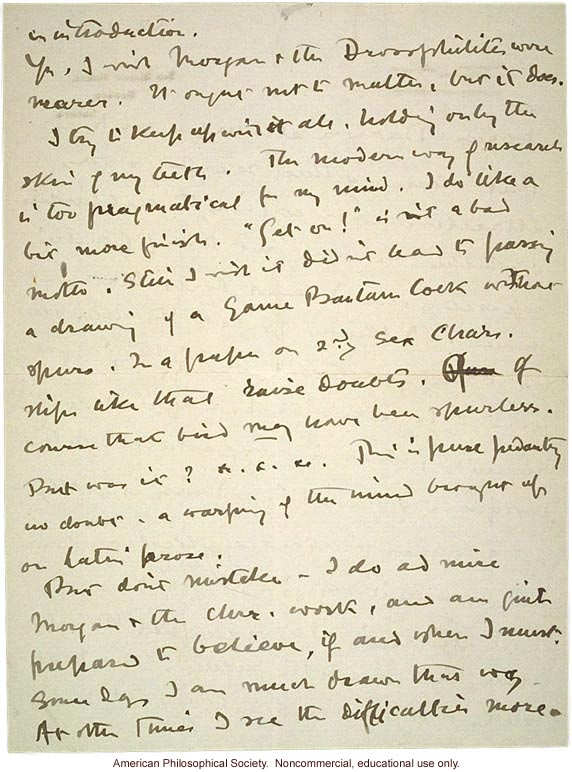 in introduction.
Yes, I wish Morgan & the Drosophilites were
nearer. It ought not to matter, but it does.
I try to keep up with it all, holding on by the
skin of my teeth. The modern way of research
is too pragmatical for my mind. I do like a
bit more finish. "Get on!" is not a bad
motto. Still I wish it didn't lead to passing
a drawing of a Game Bantam Cock without
spurs. In a paper on 2ry Sex Chars.
slips like that raise doubts. Of
course that bird may have been spurless.
But was it? &. &. &. This is pure pedantry
no doubt - a warping of the mind brought up
on Latin prose.
But don't mistake - I do admire
Morgan & the chr. work, and am quite
prepared to believe, if and when I must.
Some days I am much drawn that way.
At other times I see the difficulties more.
American Philosophical Society. Noncommercial, educational use only.